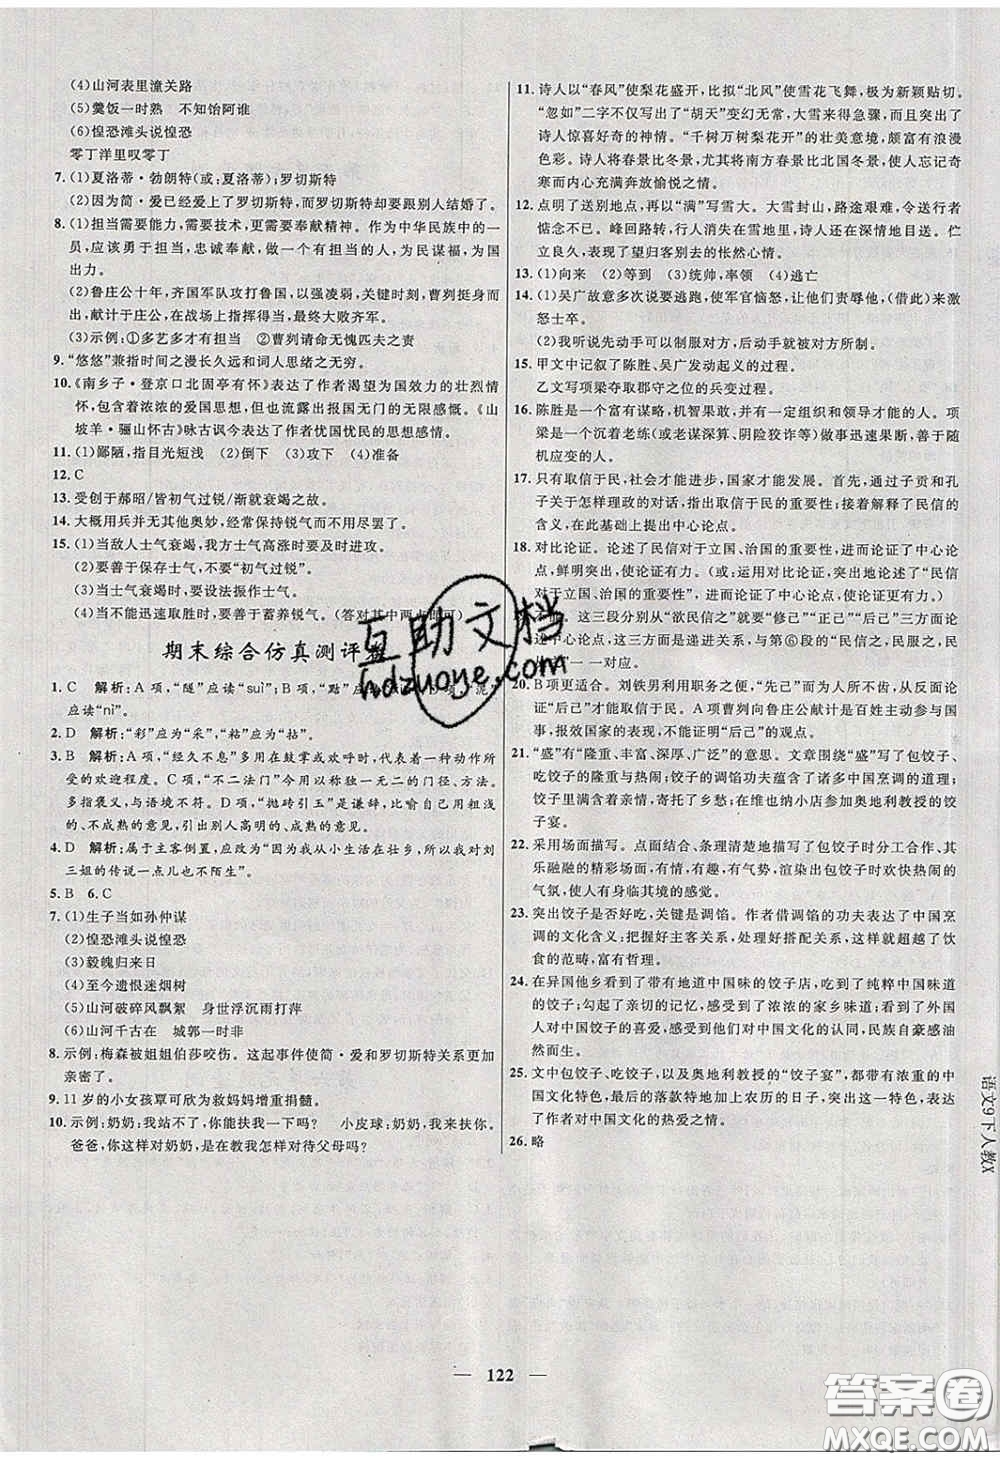 (4)山河表里潼关路
(5)羹饭一时熟　不知饴阿谁
(6)惶恐滩头说惶恐
零丁洋里叹零丁
7. (1)夏洛蒂·勃朗特(或:夏洛蒂);罗切斯特
(2)因为简·爱已经爱上了罗切斯特,而罗切斯特却要跟别人结婚了。
8. (1)担当需要能力,需要技术,更需要奉献精神。作为中华民族中的一
员,应该勇于担当,忠诚奉献,做一个有担当的人,为民谋福,为国
出力。
(2)鲁庄公十年,齐国军队攻打鲁国,以强凌弱,关键时刻,曹刿挺身而
出,献计于庄公,在战场上指挥得当,最终大败齐军。
(3)示例:①多艺多才有担当　②曹刿请命无愧匹夫之责
9. “悠悠”兼指时间之漫长久远和词人思绪之无穷。
10. 《南乡子·登京口北固亭有怀》表达了作者渴望为国效力的壮烈情
怀,包含着浓浓的爱国思想,但也流露出报国无门的无限感慨。《山
坡羊·骊山怀古》咏古讽今表达了作者忧国忧民的思想感情。
11. (1)鄙陋,指目光短浅　(2)倒下　(3)攻下　(4)准备
12. C
13. 受创于郝昭/皆初气过锐/渐就衰竭之故。
14. 大概用兵并无其他奥妙,经常保持锐气而用不尽罢了。
15. (1)当敌人士气衰竭,我方士气高涨时要予以进攻。
(2)要善于保存士气,不要“初气过锐”。
(3)当士气衰竭时,要设法振作士气。
(4)当不能迅速取胜时,要善于蓄养锐气。(答对其中两点即可)
期末综合仿真测评卷
1. C　解析:A项,“隧”应读“suì”;B项,“黠”应读
应读“nì”。
2. D　解析:“彩”应为“采”,“粘”应为“拈”。
3. B　解析:A项,“经久不息”多用在鼓掌或欢呼时,代表着一种动作所
受的欢迎程度。C项,“不二法门”今用来比喻独一无二的门径、方法。
多指褒义,与语境不符。D项,“抛砖引玉”是谦辞,比喻自己用粗浅
的、不成熟的意见,引出别人高明的、成熟的意见。
4. D　解析:属于主客倒置,应改为“因为我从小生活在壮乡,所以我对刘
三姐的传说一点儿也不陌生”。
5. B　6. C
7. (1)生子当如孙仲谋
(2)惶恐滩头说惶恐
(3)毅魄归来日
(4)至今遗恨迷烟树
(5)山河破碎风飘絮　身世浮沉雨打萍
(6)山河千古在　城郭一时非
8. 示例:梅森被姐姐伯莎咬伤。这起事件使简·爱和罗切斯特关系更加
亲密了。
9. 11岁的小女孩覃可欣为救妈妈增重捐髓。
10. 示例:奶奶:我站不了了,你能扶我一下吗?　小皮球:奶奶,我来扶你。
爸爸,你这样对奶奶,是在教我怎样对待父母吗?
11. 诗人以“春风”使梨花盛开,比拟“北风”使雪花飞舞,极为新颖贴切。
“忽如”二字不仅写出了“胡天”变幻无常,大雪来得急骤,而且写出了
诗人惊喜好奇的神情。“千树万树梨花开”的壮美意境,颇富有浪漫
色彩。诗人将春景比冬景,尤其将南方春景比北国冬景,几使人忘记奇
寒而内心充满奔放愉悦之情。
12. 点明了送别地点,再以“满”写雪大。大雪封山,路途艰难,令送行者
惦念不已。峰回路转,行人消失在雪地里,诗人还在深情地目送。伫
立良久,表现了望归客别去的怅然心情。
13. (1)向来　(2)等到　(3)统帅,率领　(4)逃亡
14. (1)吴广故意多次说要逃跑,使军官恼怒,让他们责辱他,(借此)来激
怒士卒。
(2)我听说先动手可以制服对方,后动手就要被对方所制。
15. 甲文中记叙了陈胜、吴广发动起义的过程。
乙文写项梁夺取郡守之位的兵变过程。
16. 陈胜是一个富有谋略,机智果敢,并有一定组织和领导才能的人。项
梁是一个沉着老练(或老谋深算、阴险狡诈等)做事迅速果断,善于随
机应变的人。
17. 只有取信于民,社会才能进步,国家才能发展。首先,通过子贡和孔
子关于怎样理政的对话,指出取信于民的重要性;接着解释了民信的
含义,在此基础上提出中心论点。
18. 对比论证。论述了民信对于立国、治国的重要性,进而论证了中心论
点,鲜明突出,使论证有力。(或:运用对比论证,论述了“民信
对于立国、治国的重要性,进而论证了中心论点,使论证更有力。)
这三段分别从“欲民信之”就要“修己”“正己”“后己”三方面
中心论点,这三方面是递进关系,与第⑥段的“民信之,民服之,民
”一一对应。
20. B项更适合。刘铁男利用职务之便,“先己”而为人所不齿,从反面论
证“后己”才能取信于民。A项曹刿向鲁庄公献计是百姓主动表现,
报效国家的表现,不能证明“后己”的观点。
21. “盛”有“隆重、丰富、深厚、广泛”的意思。文章围绕“盛”写了包饺子、
吃饺子的隆重与热闹;饺子的调馅功夫蕴含了诸多中国烹调的道理;
饺子里面满含着亲情,寄托了乡愁;在维也纳小店参加奥地利教授的饺
子宴。
22. 采用场面描写。点面结合、条理清楚地描写了包饺子时分工合作、其
乐融融的精彩场面,有情,有趣,有爱,渲染出包饺子时欢快热闹的
气氛,使人有身临其境的感觉。
23. 突出饺子是否好吃,关键是调馅。作者借调馅的功夫表达了中国烹
调的文化含义:把握好主客关系,处理好搭配关系,这样就超越了饮食
的范畴,富有哲理。
24. 在异国他乡看到了带有地道中国味的饺子店,吃到了纯粹中国味的
饺子;勾起了亲切的记忆,感受到了浓浓的家乡味道;看到了外国
人对中国饺子的喜爱,感受到他们对中国文化的认同,民族自豪感油
然而生。
25. 文中包饺子、吃饺子,以及奥地利教授的“饺子宴”,都带有浓重的中
国文化特色,最后的落款特地加上农历的日子,突出这一特色,表达
了作者对中国文化的热爱之情。
26. 略
语文9下人教X
122
互助文档
hdzuoye.com
答案圈
MXQE.COM